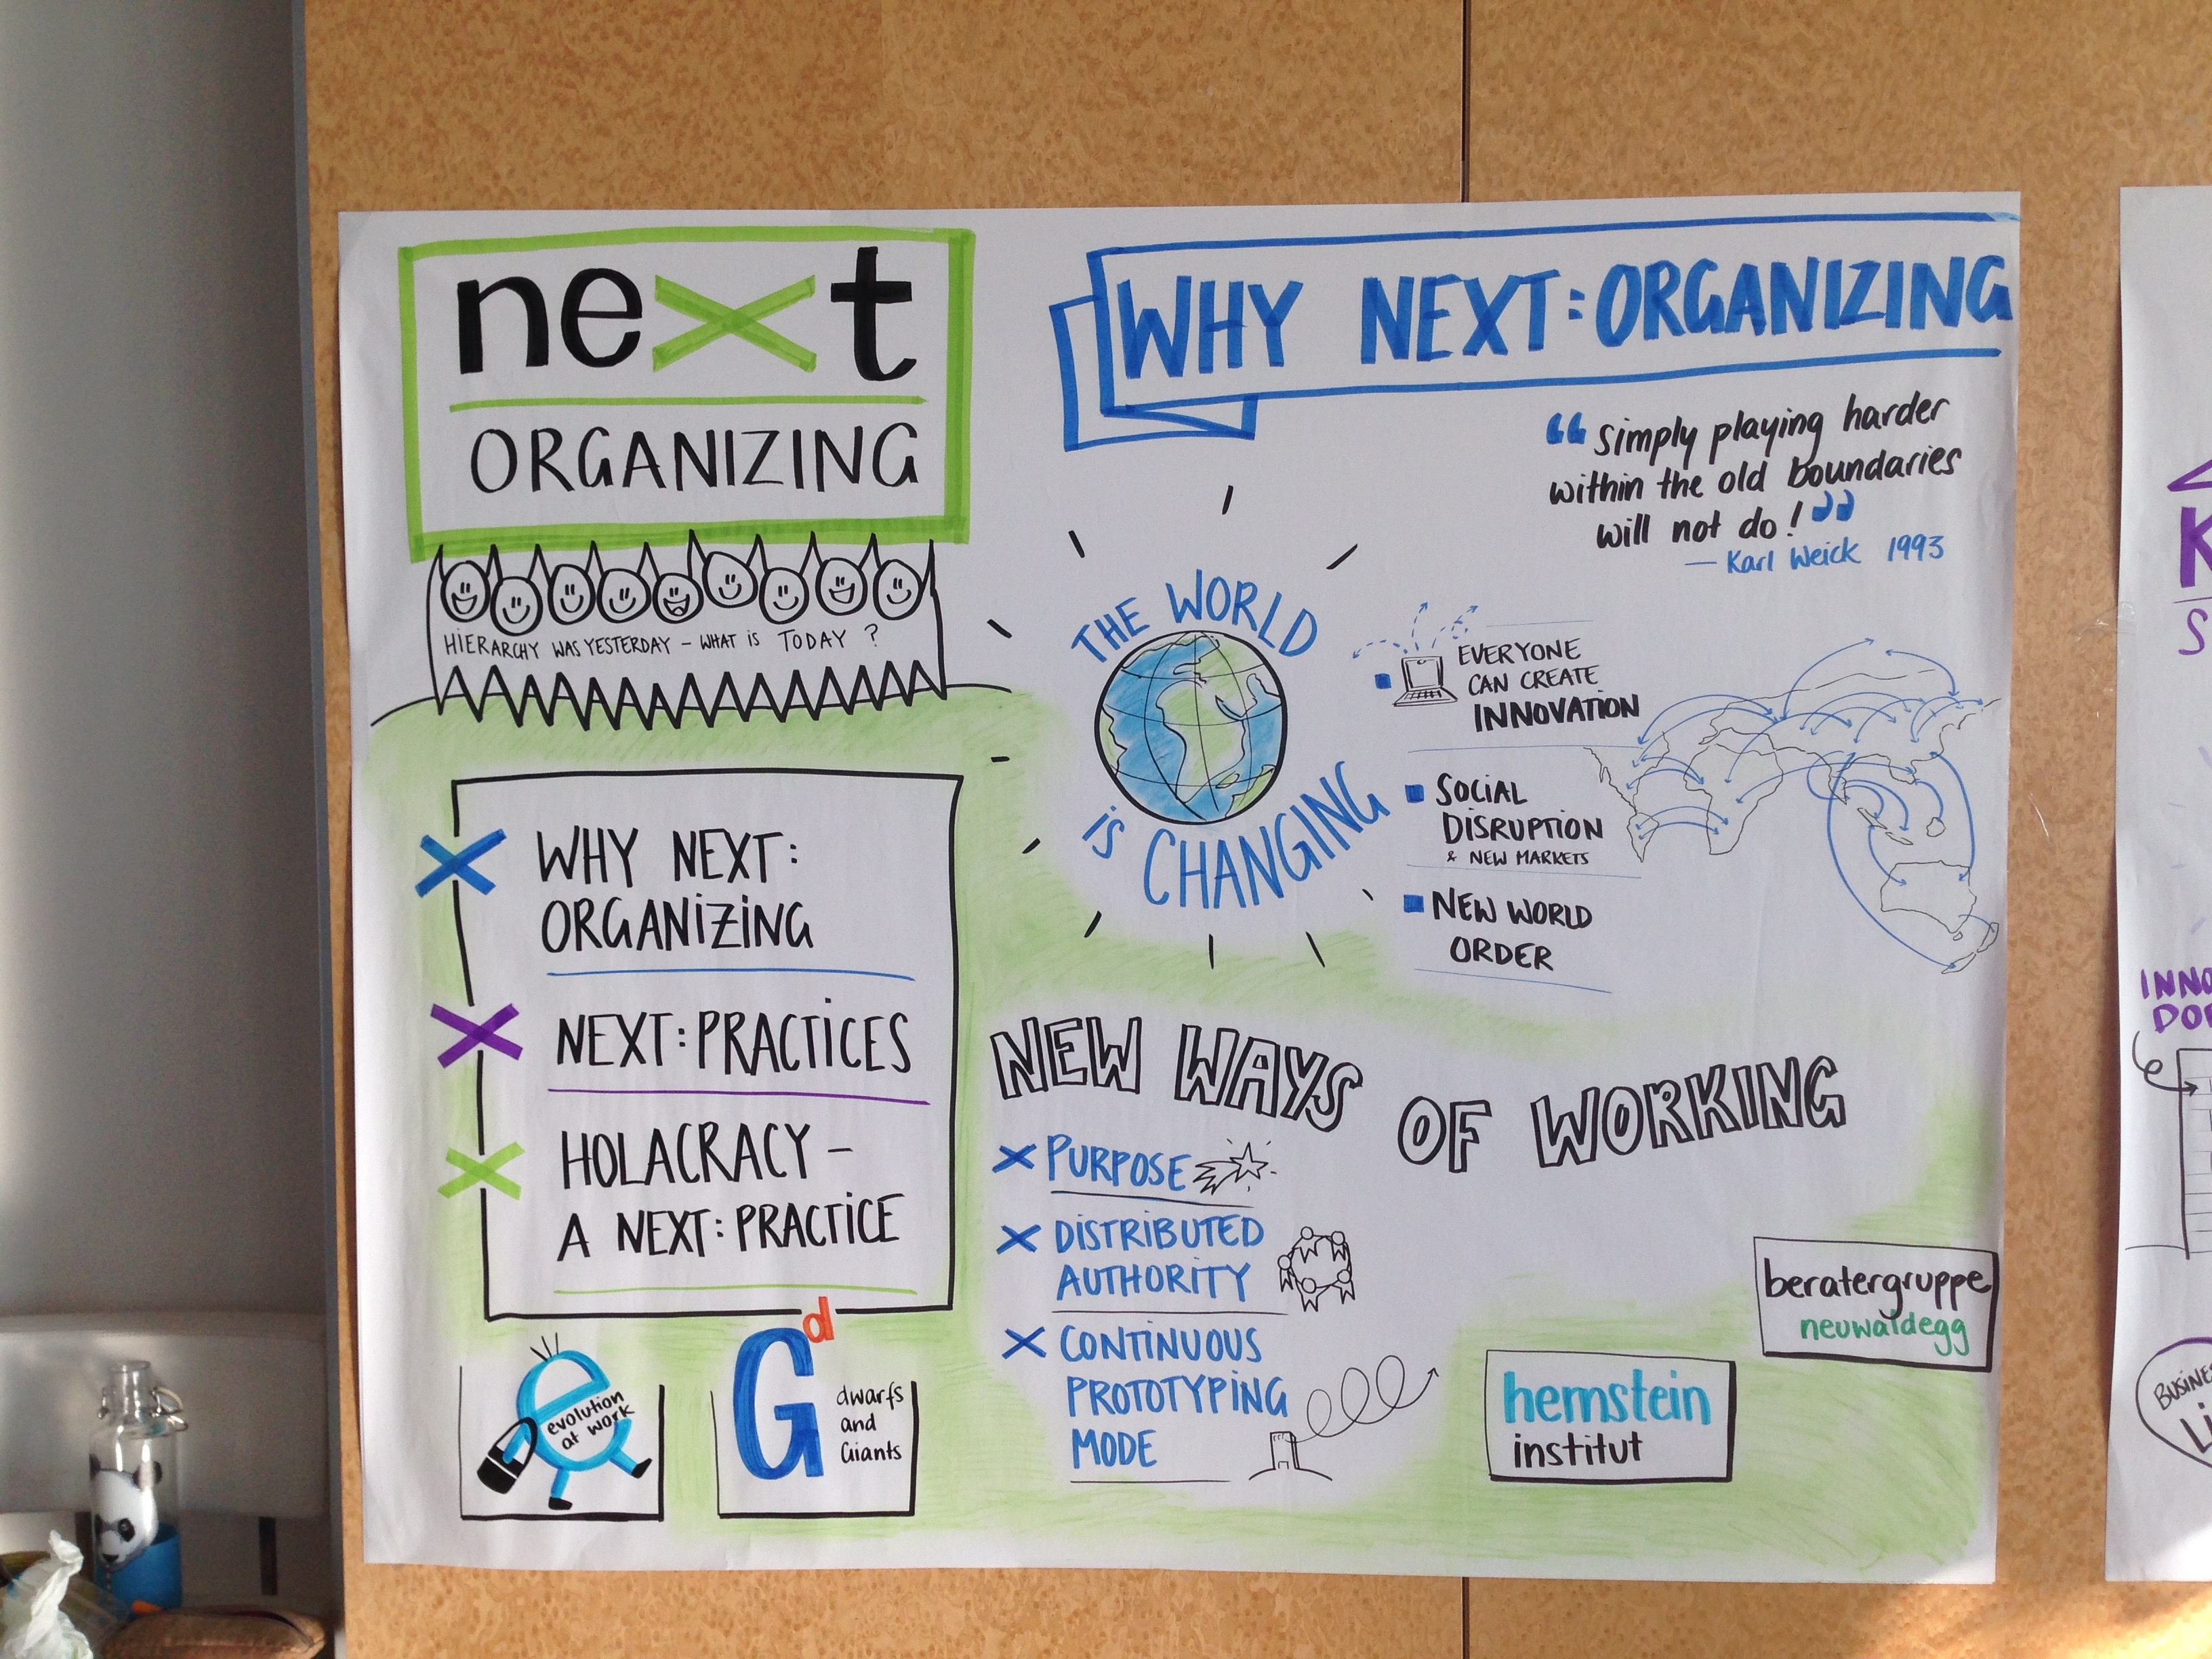 next
ORGANIZING
HIERARCHY WAS YESTERDAY – WHAT IS TODAY ?
WHY NEXT:
ORGANIZING
NEXT:PRACTICES
HOLACRACY –
A NEXT:PRACTICE
evolution
at work
Gd
dwarfs
and
Giants
WHY NEXT:ORGANIZING
“simply playing harder
within the old boundaries
will not do!”
— Karl Weick 1993
THE WORLD
IS CHANGING
EVERYONE
CAN CREATE
INNOVATION
SOCIAL
DISRUPTION
& NEW MARKETS
NEW WORLD
ORDER
NEW WAYS OF WORKING
PURPOSE
DISTRIBUTED
AUTHORITY
CONTINUOUS
PROTOTYPING
MODE
beratergruppe
neuwaldegg
hernstein
institut